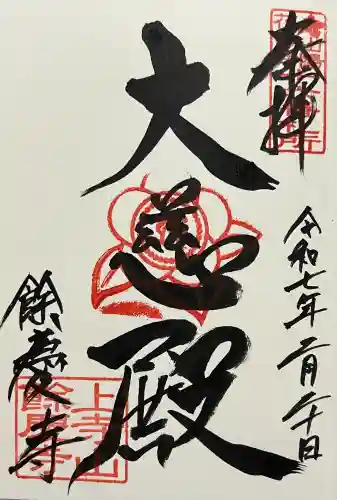 奉拝
令和七年二月二十日
大慈殿
餘慶寺
上寺山
餘慶寺